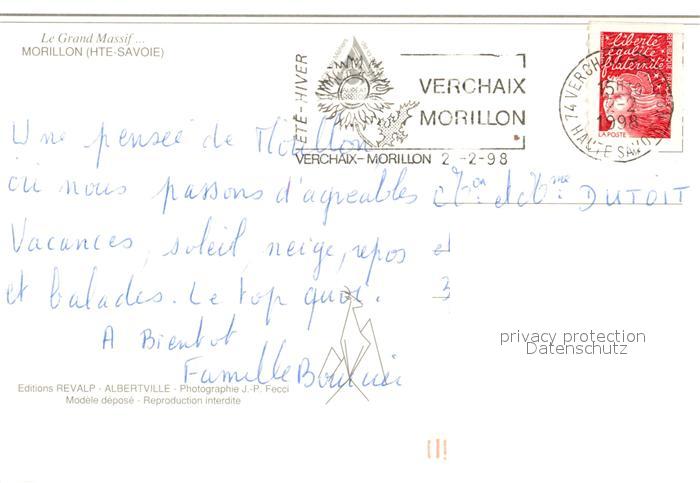 Le Grand Massif ...
MORILLON (HTE-SAVOIE)
ÉTÉ-HIVER
VERCHAIX
MORILLON
VERCHAIX-MORILLON 2 -2-98
74 VERCH
15H
2-2
1998
HAUTE SAVOIE
liberté
égalité
fraternité
LA POSTE
Une pensée de Morillon
où nous passons d'agreables
Vacances, soleil, neige, repos
et balades. Le top quoi.
A Bientot
Famille
Mon et Mme DUTOIT
et
3
privacy protection
Datenschutz
Editions REVALP - ALBERTVILLE - Photographie J.-P. Fecci
Modèle déposé - Reproduction interdite